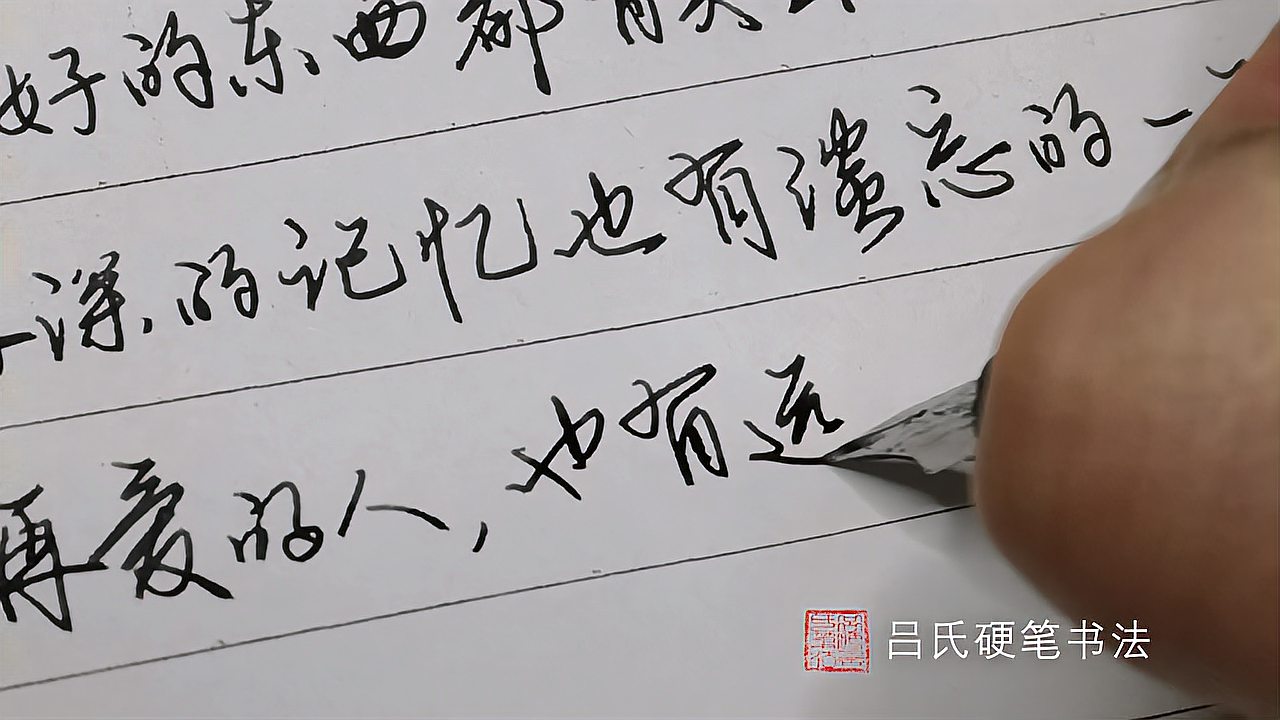 好的东西都有失
深的记忆也有遗忘的一
再爱的人，也有远
吕氏硬笔书法